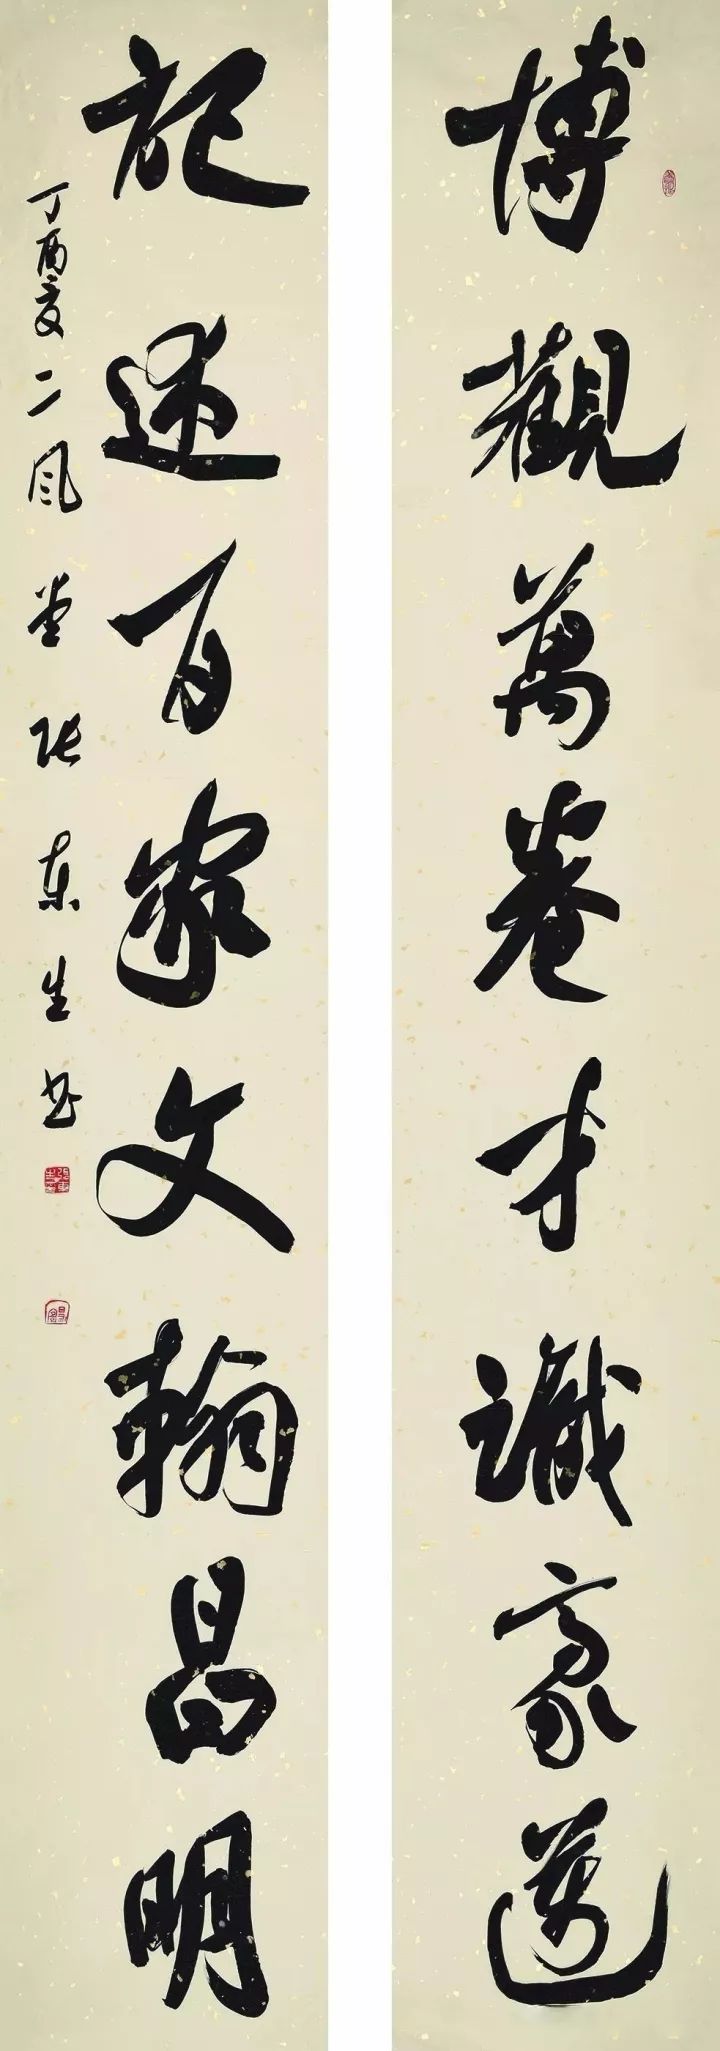 博觀萬卷才識豪邁
記述百家文翰昌明
丁酉夏二風堂张東生书